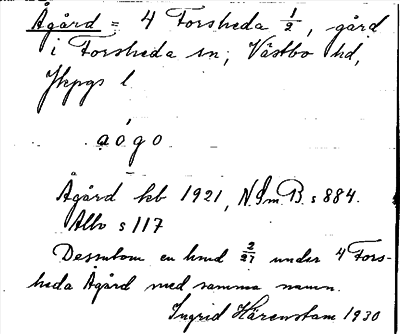 Ågård = 4 Forsheda 1/2, gård
i Forsheda sn, Västbo hd,
Jkpgs l
aógo
Ågård kb 1921, N.Sm.B. s 884.
Allo s 117
Dessutom en lhnd 2/21 under 4 Fors-
heda Ågård med samma namn.
Ingrid Härenstam 1930